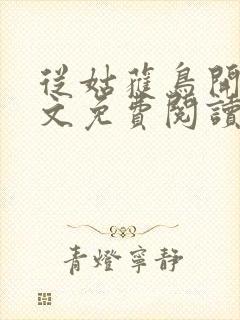 從姑獲鳥開
文免費閱讀
青燈寧靜